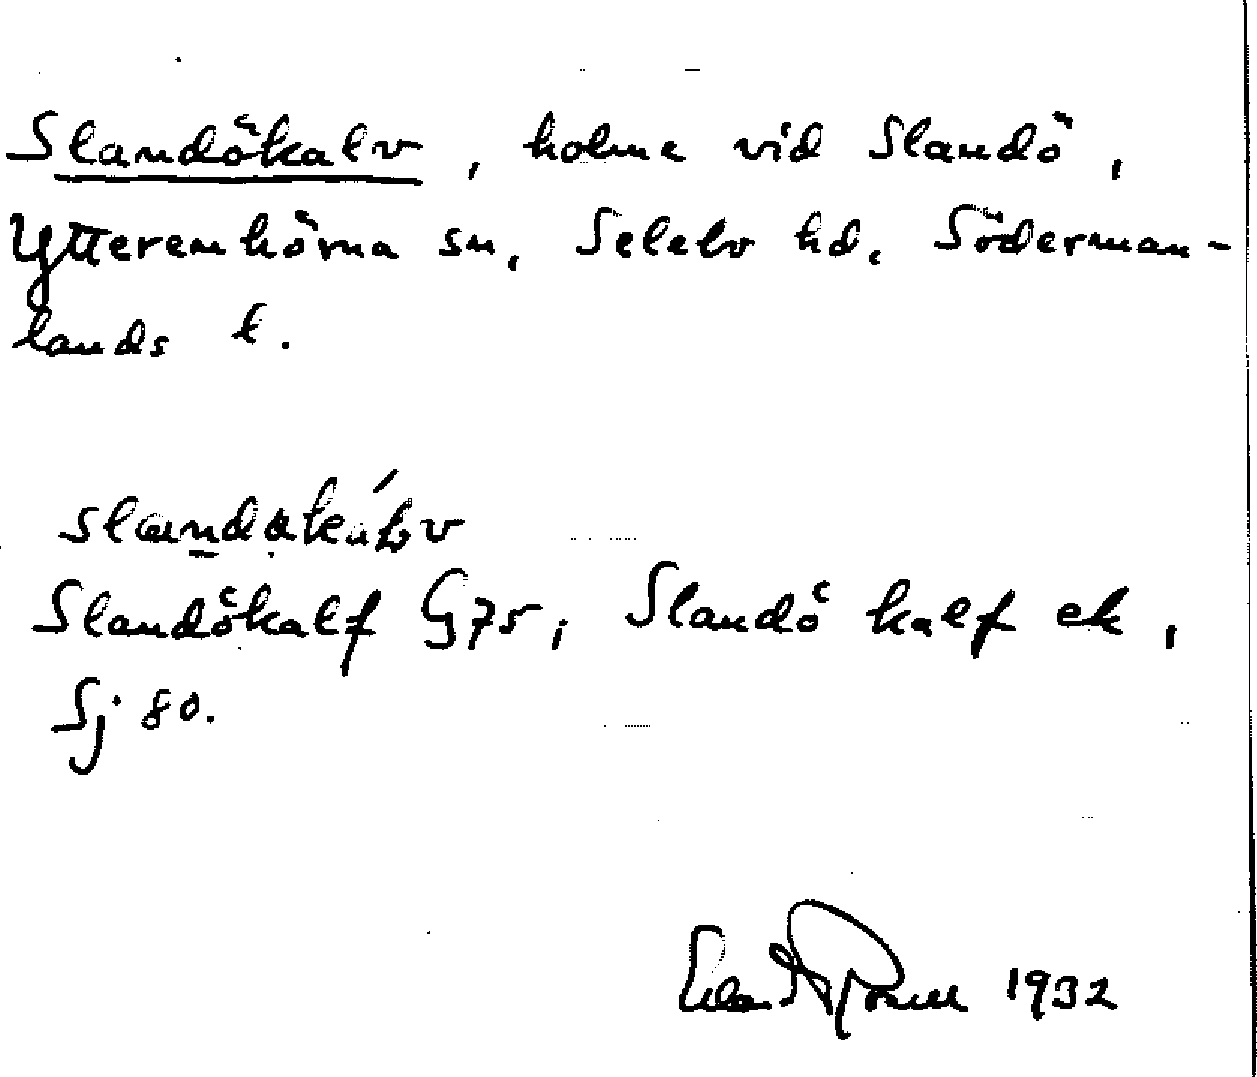 Slandökalv, holme vid Slandö,
Ytterenhörna sn, Selebo hd, Söderman-
lands l.
Slandökalf G75; Slandö kalf ek,
Sj 80.
1932